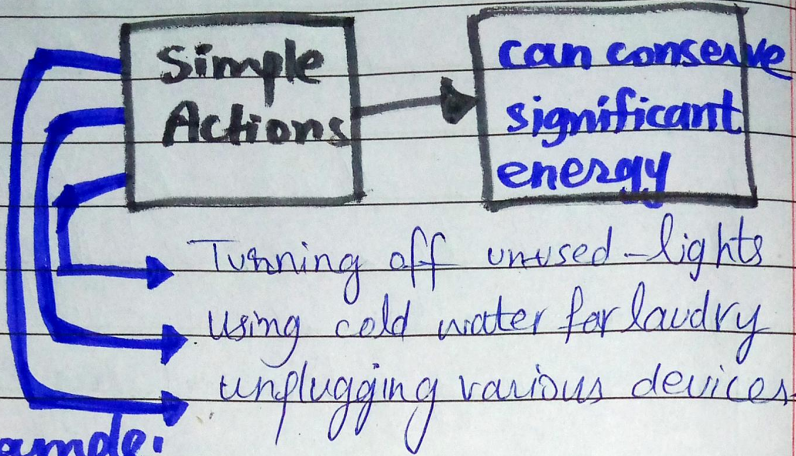 Simple
Actions
can conserve
significant
energy
Turning off unused lights
using cold water for laudry
unplugging various devices